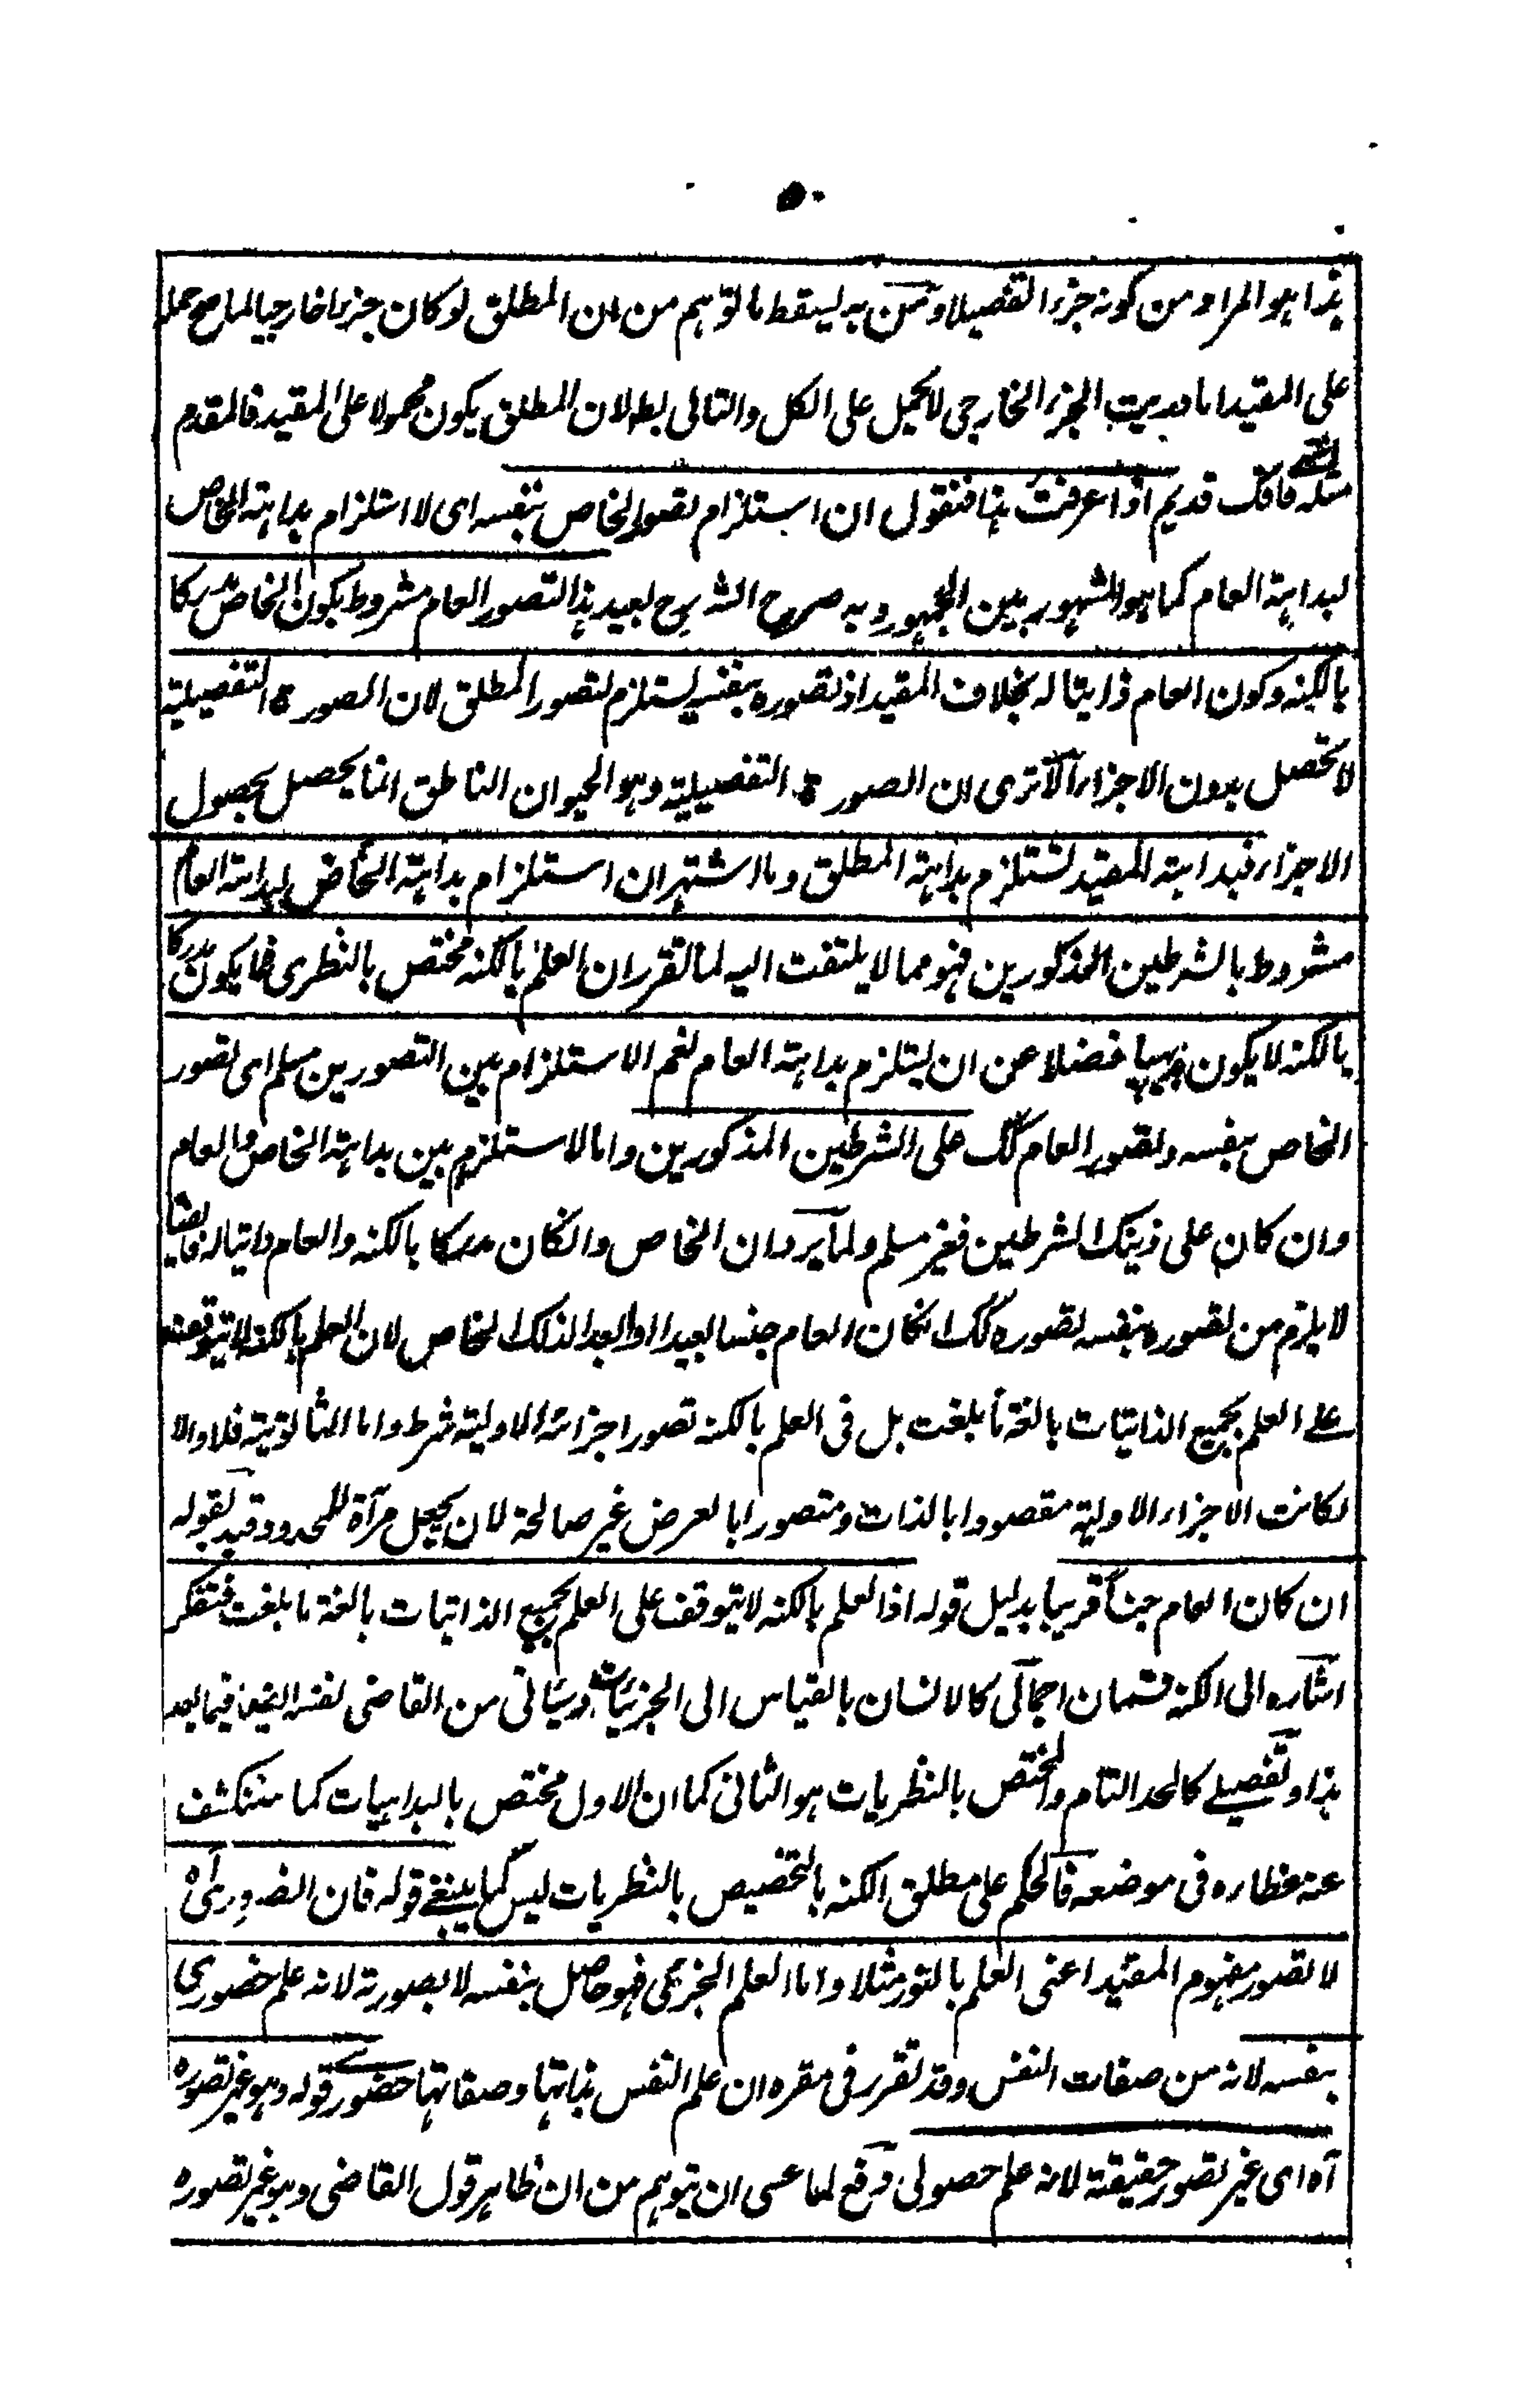 ٥٠
هذا هو المراد من كونه جزء التفصيلا ومن به يسقط ما توهم من ان المطلق لو كان جزءا خارجيا لما صح حمله
على المقيد اما الجزء الخارجي لا يحمل على الكل والتالي بط لان المطلق يكون محمولا على المقيد فالمقدم
مثله قديم اذا عرفت هذا فنقول ان استلزام تصور الخاص بنفسه اى لا استلزام بداهة الخاص
لبداهة العام كما هو المشهور بين الجمهور وبه صرح الشارح لعيد هذا التصور العام مشروط بكون الخاص مدركا
بالكنه وكون العام ذاتيا له بخلاف المقيد اذ تصوره بنفسه يستلزم تصور المطلق لان الصورة التفصيلية
لا تحصل بدون الاجزاء الا ترى ان الصورة التفصيلية وهو الحيوان الناطق انما يحصل بحصول
الاجزاء فبداهة المقيد تستلزم بداهة المطلق وما اشتهر ان استلزام بداهة الخاص لبداهة العام
مشروط بالشرطين المذكورين فهو مما لا يلتفت اليه لما تقرر ان العلم بالكنه مختص بالنظرى فما يكون مدركا
بالكنه لا يكون بديهيا فضلا عن ان يستلزم بداهة العام نعم الاستلزام بين التصورين مسلم اى تصور
الخاص بنفسه وتصور العام كك على الشرطين المذكورين واما الاستلزام بين بداهة الخاص والعام
وان كان على ذينك الشرطين فغير مسلم ولما يرد ان الخاص وانكان مدركا بالكنه والعام ذاتيا له فايضا
لا يلزم من تصوره بنفسه تصوره كك انكان العام جنسا بعيدا او ابعد لذلك الخاص لان العلم بالكنه لا يتوقف
على العلم بجميع الذاتيات بالغة ما بلغت بل فى العلم بالكنه تصور اجزائه الاولية شرط واما الثانوية فلا والا
لكانت الاجزاء الاولية مقصودا بالذات ومتصورا بالعرض غير صالحة لان يجعل مرآة للمحدود قيد بقوله
ان كان العام جنسا قريبا بدليل قوله اذ العلم بالكنه لا يتوقف على العلم بجميع الذاتيات بالغة ما بلغت فتفكر
اشاره الى الكنه قسمان اجمالى كالانسان بالقياس الى الجزئيات وسياتى من القاضى نفسه ايضا فيما بعد
هذا وتفصيلے كالحد التام والمختص بالنظريات هو الثانى كما ان الاول مختص بالبداهيات كما ستنكشف
عنه غطاءه فى موضعه فالحكم على مطلق الكنه بالتخصيص بالنظريات ليس كما ينبغے قوله فان الضرورى
لا تصور مفهوم المقيد اعنى العلم بالنور مثلا واما العلم الجزئى فهو حاصل بنفسه لا بصورته لانه علم حضورى
بنفسه لانه من صفات النفس وقد تقرر فى مقره ان علم النفس بذاتها وصفاتها حضورے قوله وهو غير تصوره
آه اى غير تصور حقيقة لانه علم حصولى دفع لما عسى ان يتوهم من ان ظاهر قول القاضى وهو غير تصوره